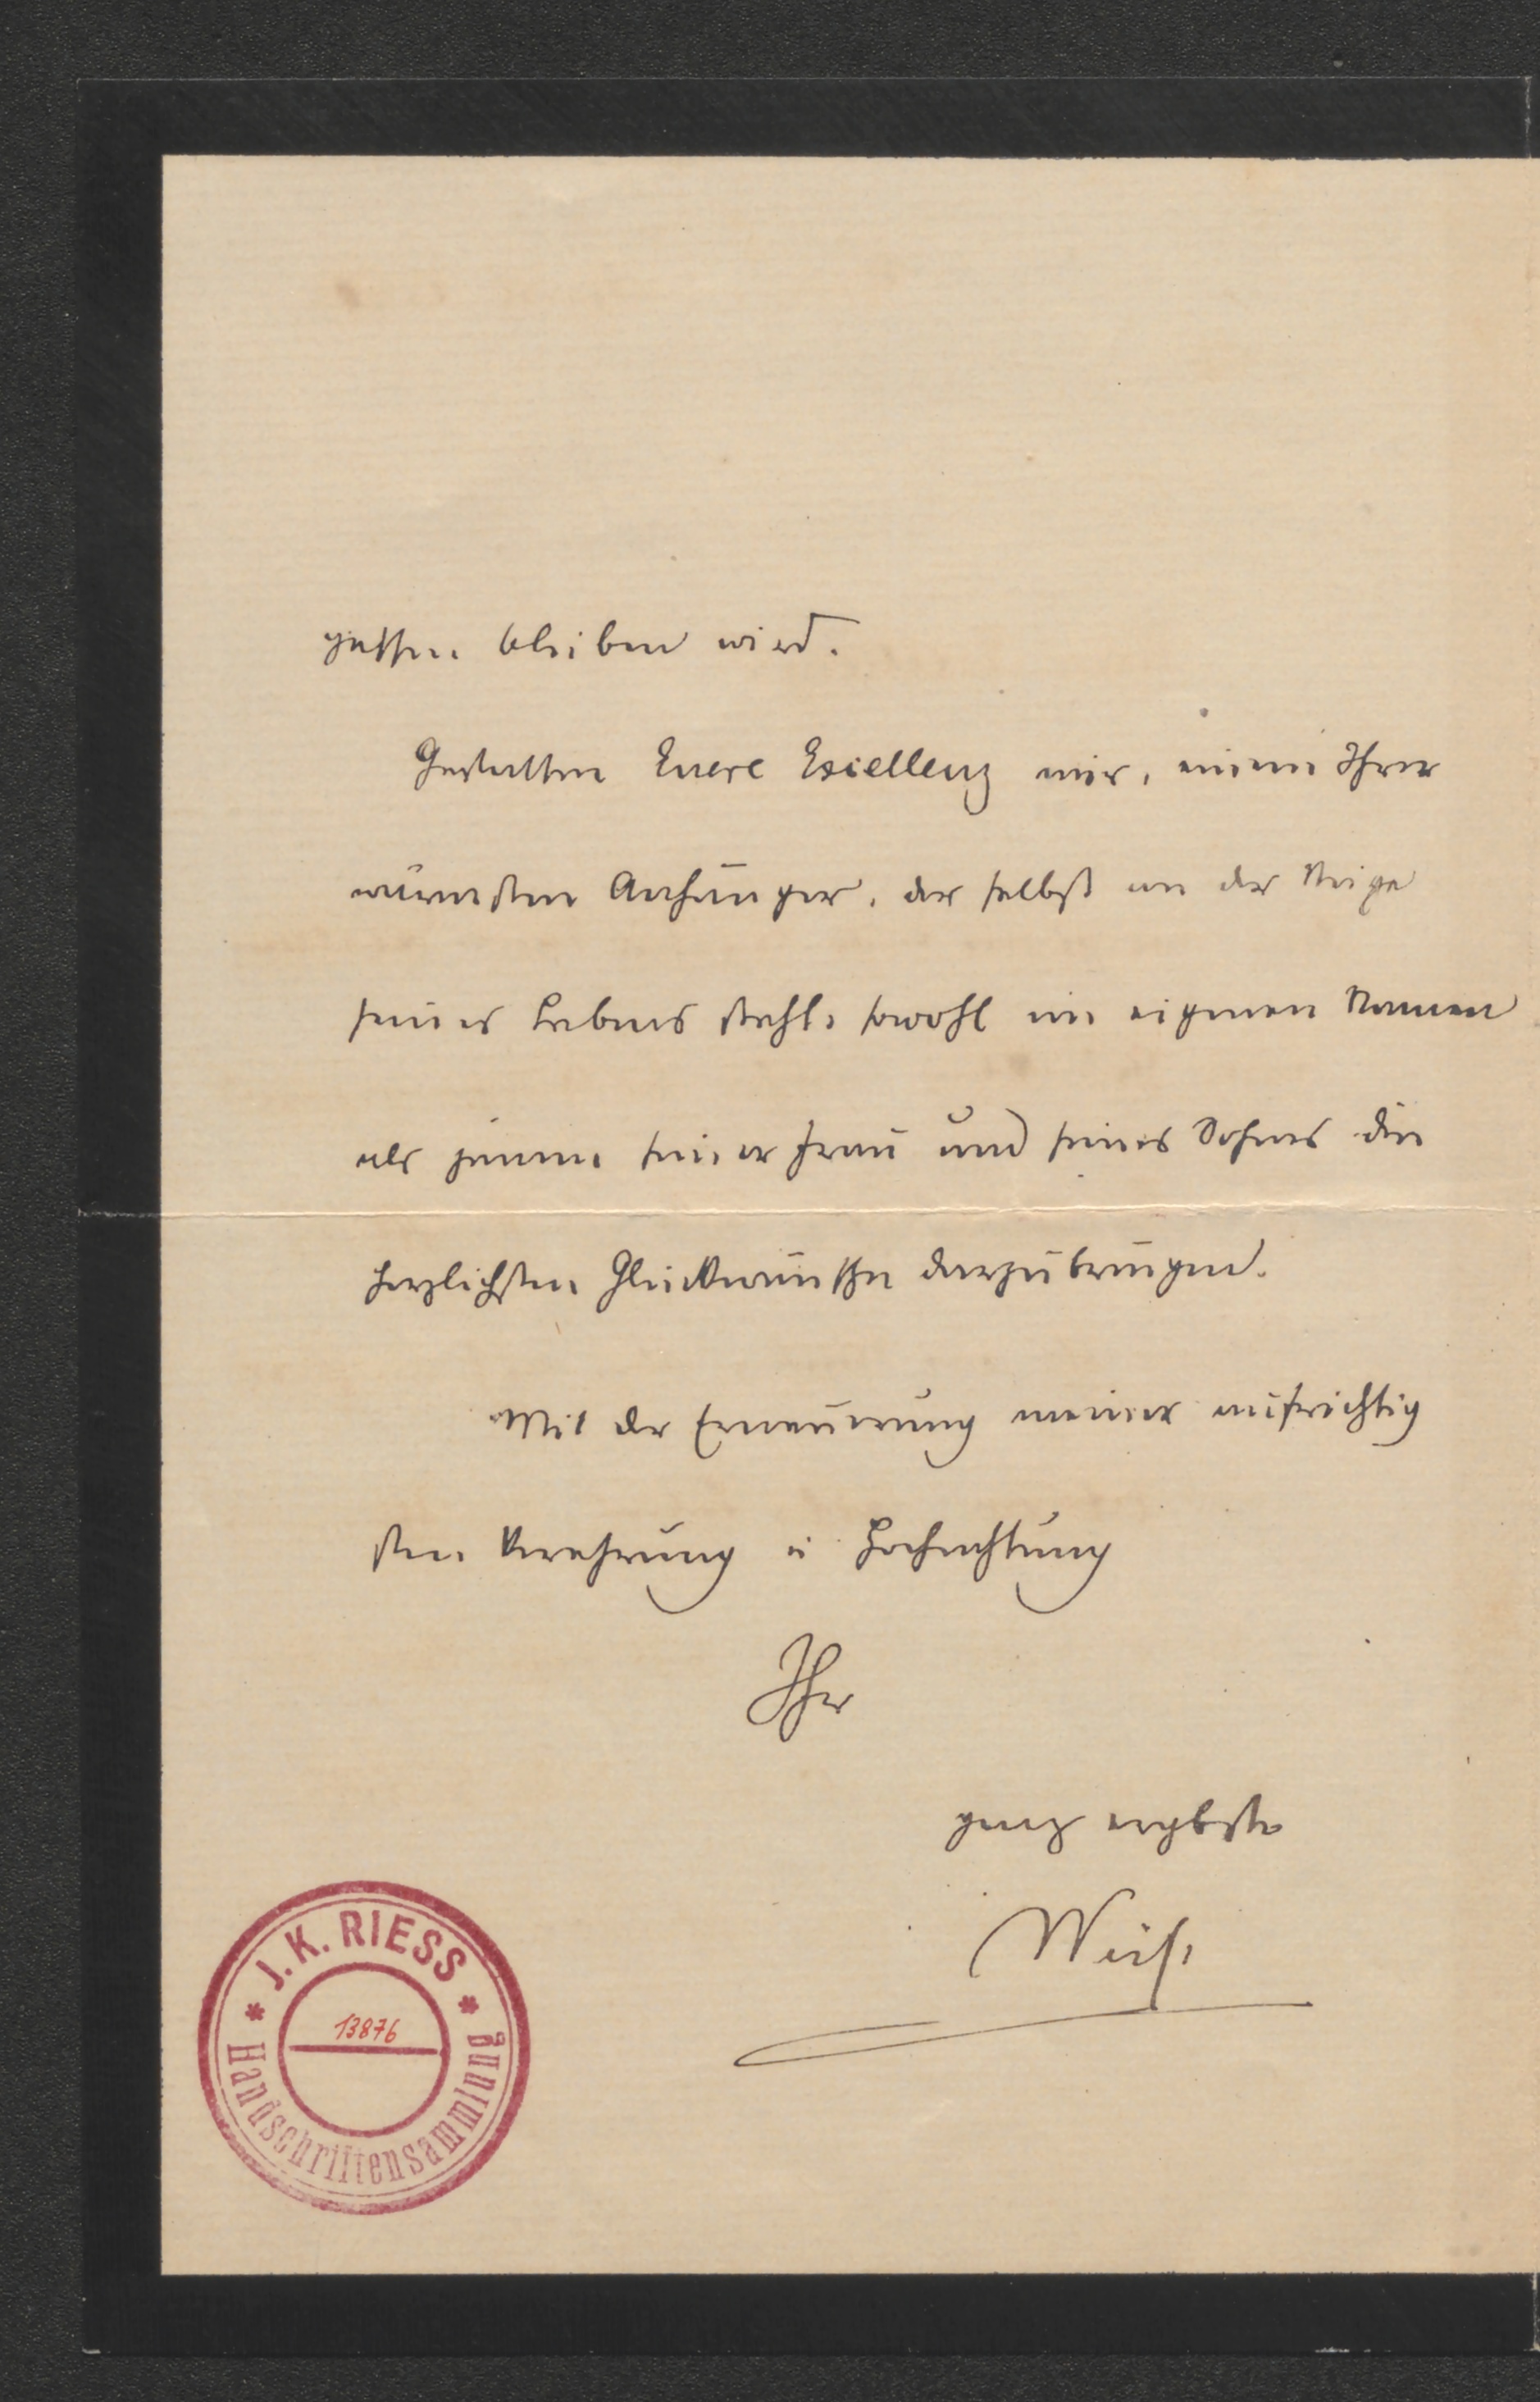 gessen bleiben wird.
Gestatten Euere Excellenz mir, einem Ihrer
wärmsten Anhänger, der selbst an der Neige
seines Lebens steht, sowohl im eigenen Namen
als jenem seiner Frau und seines Sohnes die
herzlichsten Glückwünsche darzubringen.
Mit der Erneuerung meiner aufrichtig
sten Verehrung u Hochachtung
Ihr
ganz ergbste
J. K. RIESS
13876
Handschriftensammlung